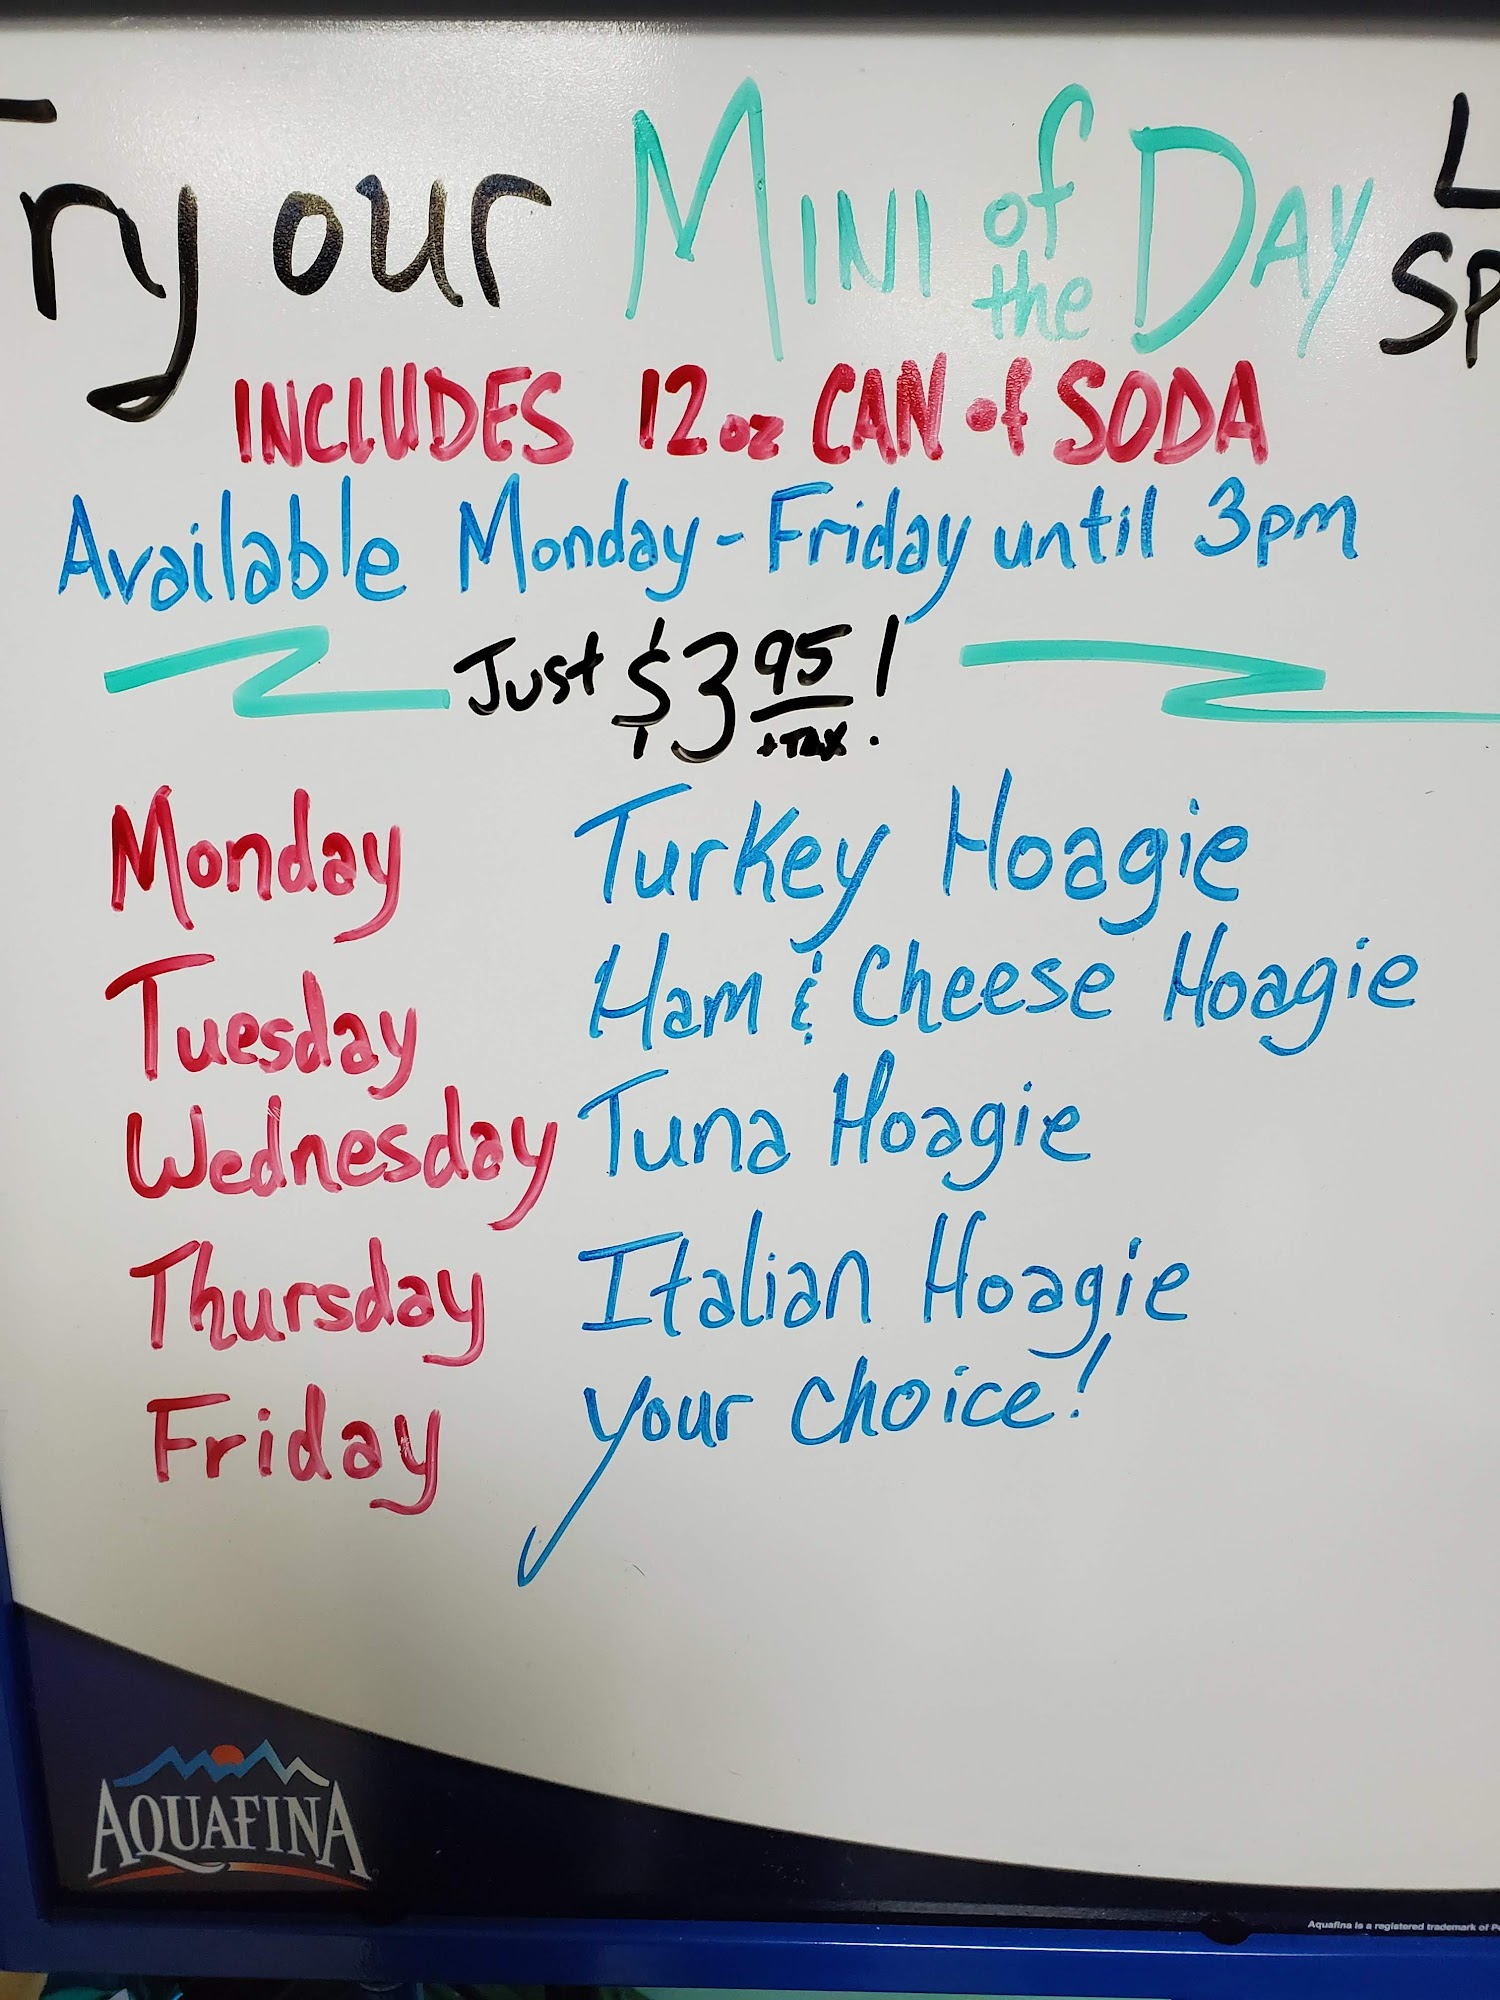 Try our MINI of the DAY
INCLUDES 12oz CAN of SODA
Available Monday-Friday until 3pm
Just $3 95 + TAX !
Monday Turkey Hoagie
Tuesday Ham & Cheese Hoagie
Wednesday Tuna Hoagie
Thursday Italian Hoagie
Friday your choice!
AQUAFINA
Aquafina is a registered trademark of